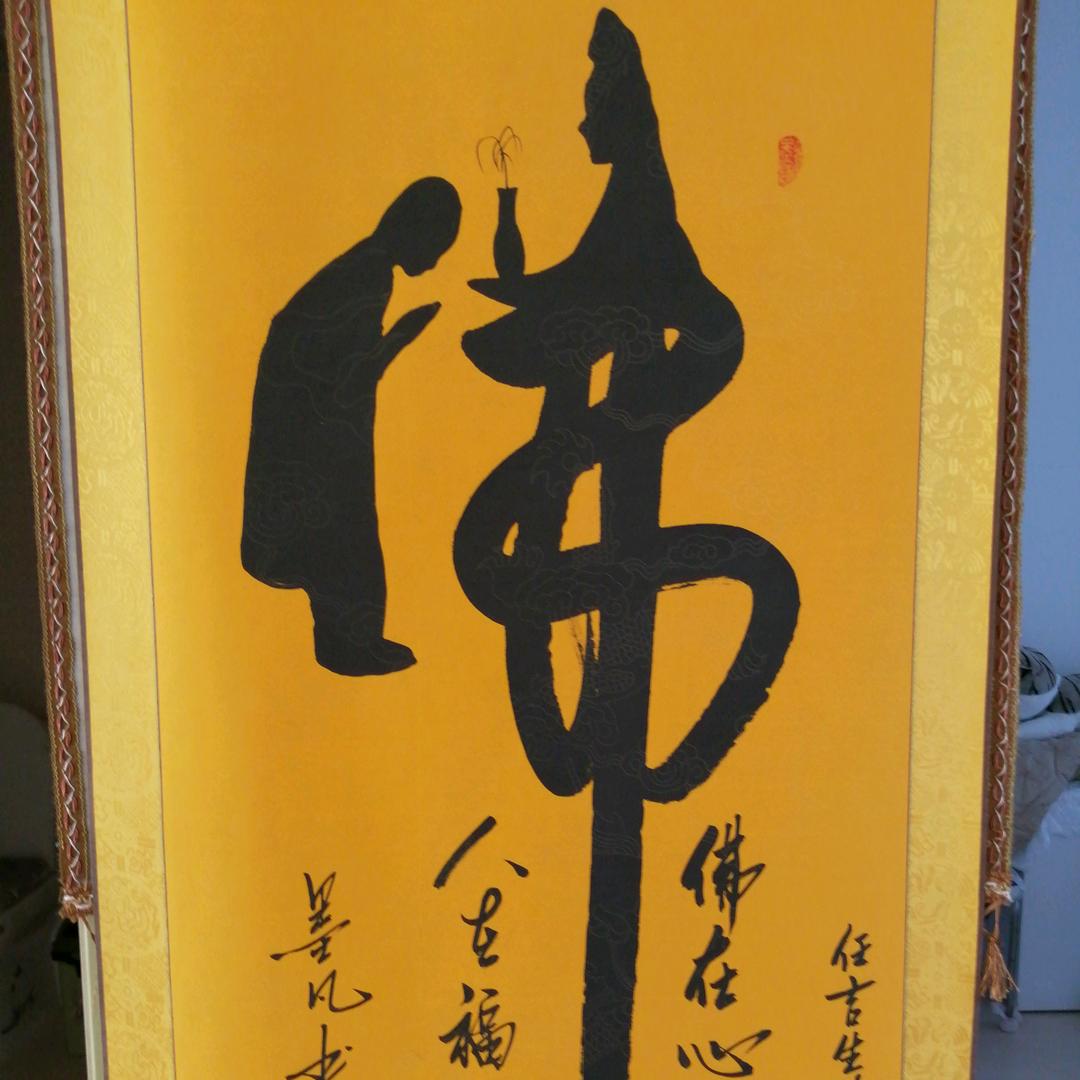 佛
任吉生
佛在心
人在福
墨凡书